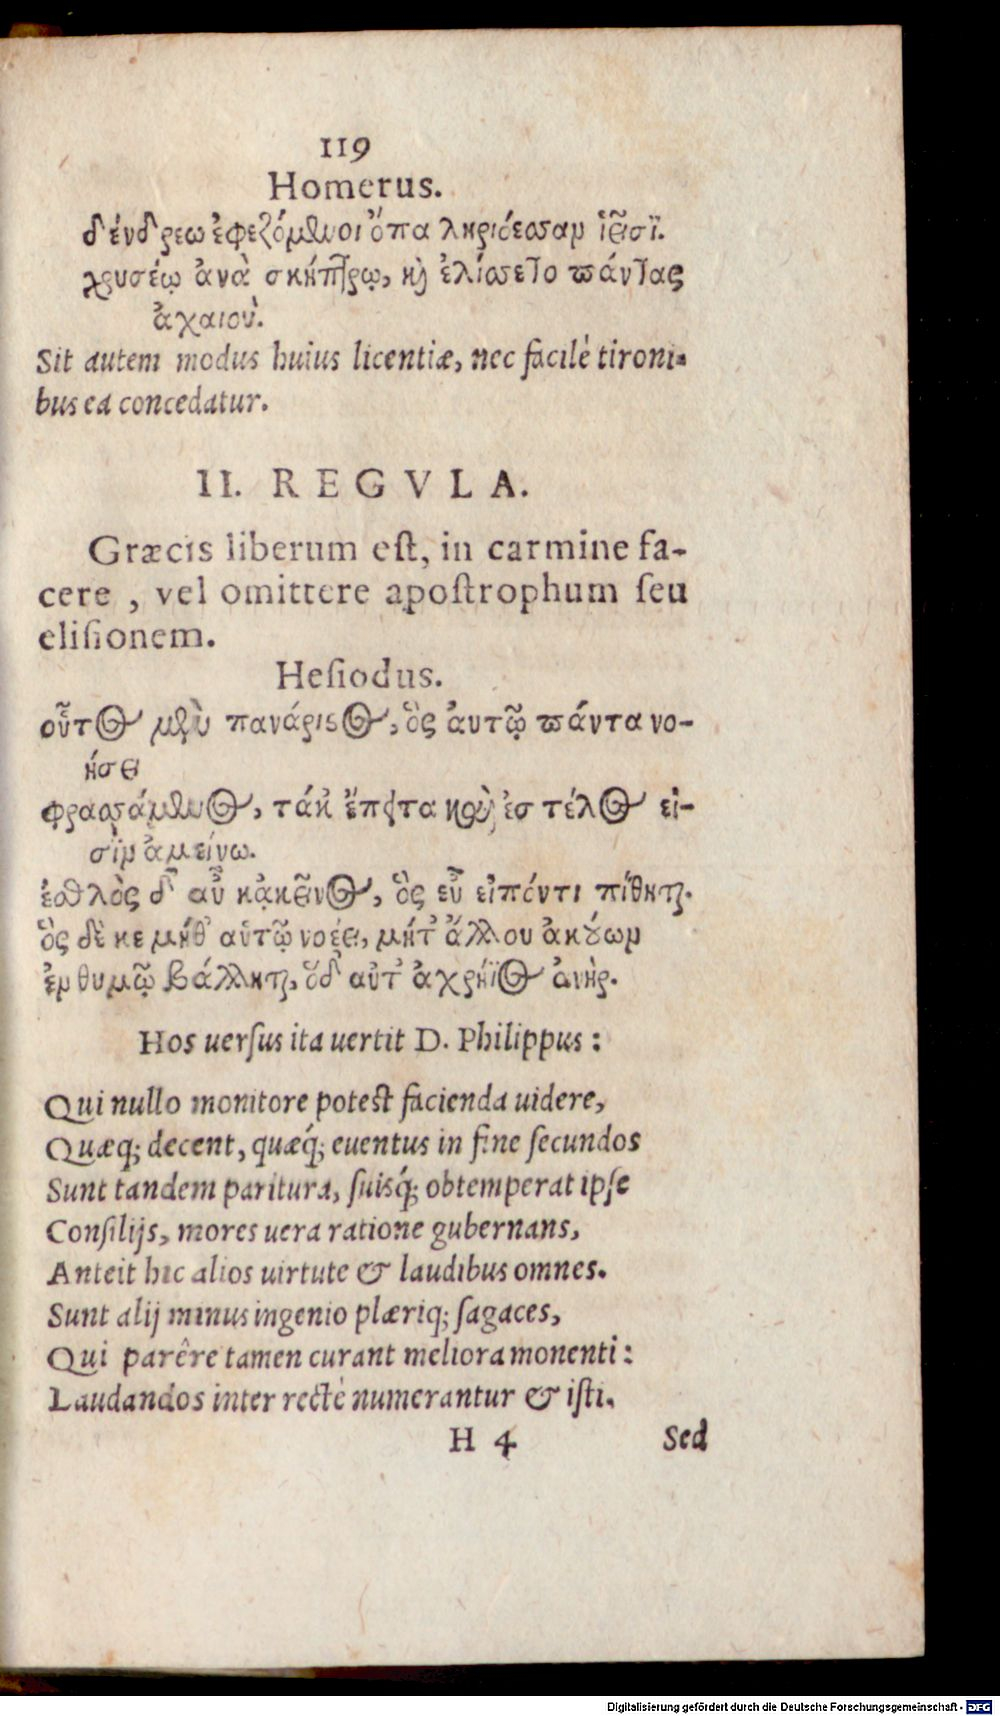 119
Homerus.
δένδρεω ἐφεζόμενοι ὄπα ληριόεσσαν ἱεῖσϊ.
χρυσέῳ ἀνὰ σκήπτρῳ, καὶ ἐλίσσετο πάντας
ἀχαιοὺ.
Sit autem modus huius licentiæ, nec facilè tironi-
bus ea concedatur.
II. REGVLA.
Græcis liberum eſt, in carmine fa-
cere , vel omittere apoſtrophum ſeu
eliſionem.
Heſiodus.
οὗτος μὲν πανάριστος, ὃς ἀυτῷ πάντα νο-
ήσει
φρασσάμενος, τάκ' ἔπειτα καὶ ἐσ τέλος εἰ-
σὶν ἀμείνω.
ἐσθλὸς δ' αὖ κᾀκεῖνος, ὃς εὖ εἰπόντι πίθηται.
ὃς δὲ κε μήθ' αὑτῷ νοέει, μήτ' ἄλλου ἀκούων
ἐν θυμῷ βάλληται, ὅδ' αὖτ' ἀχρήϊος ἀνὴρ.
Hos uerſus ita uertit D. Philippus :
Qui nullo monitore poteſt facienda uidere,
Quæq; decent, quæq́; euentus in fine ſecundos
Sunt tandem paritura, ſuisq́; obtemperat ipſe
Conſilijs, mores uera ratione gubernans,
Anteit hic alios uirtute & laudibus omnes.
Sunt alij minus ingenio plæriq; ſagaces,
Qui parêre tamen curant meliora monenti :
Laudandos inter rectè numerantur & iſti.
H 4 Sed
Digitalisierung gefördert durch die Deutsche Forschungsgemeinschaft - DFG